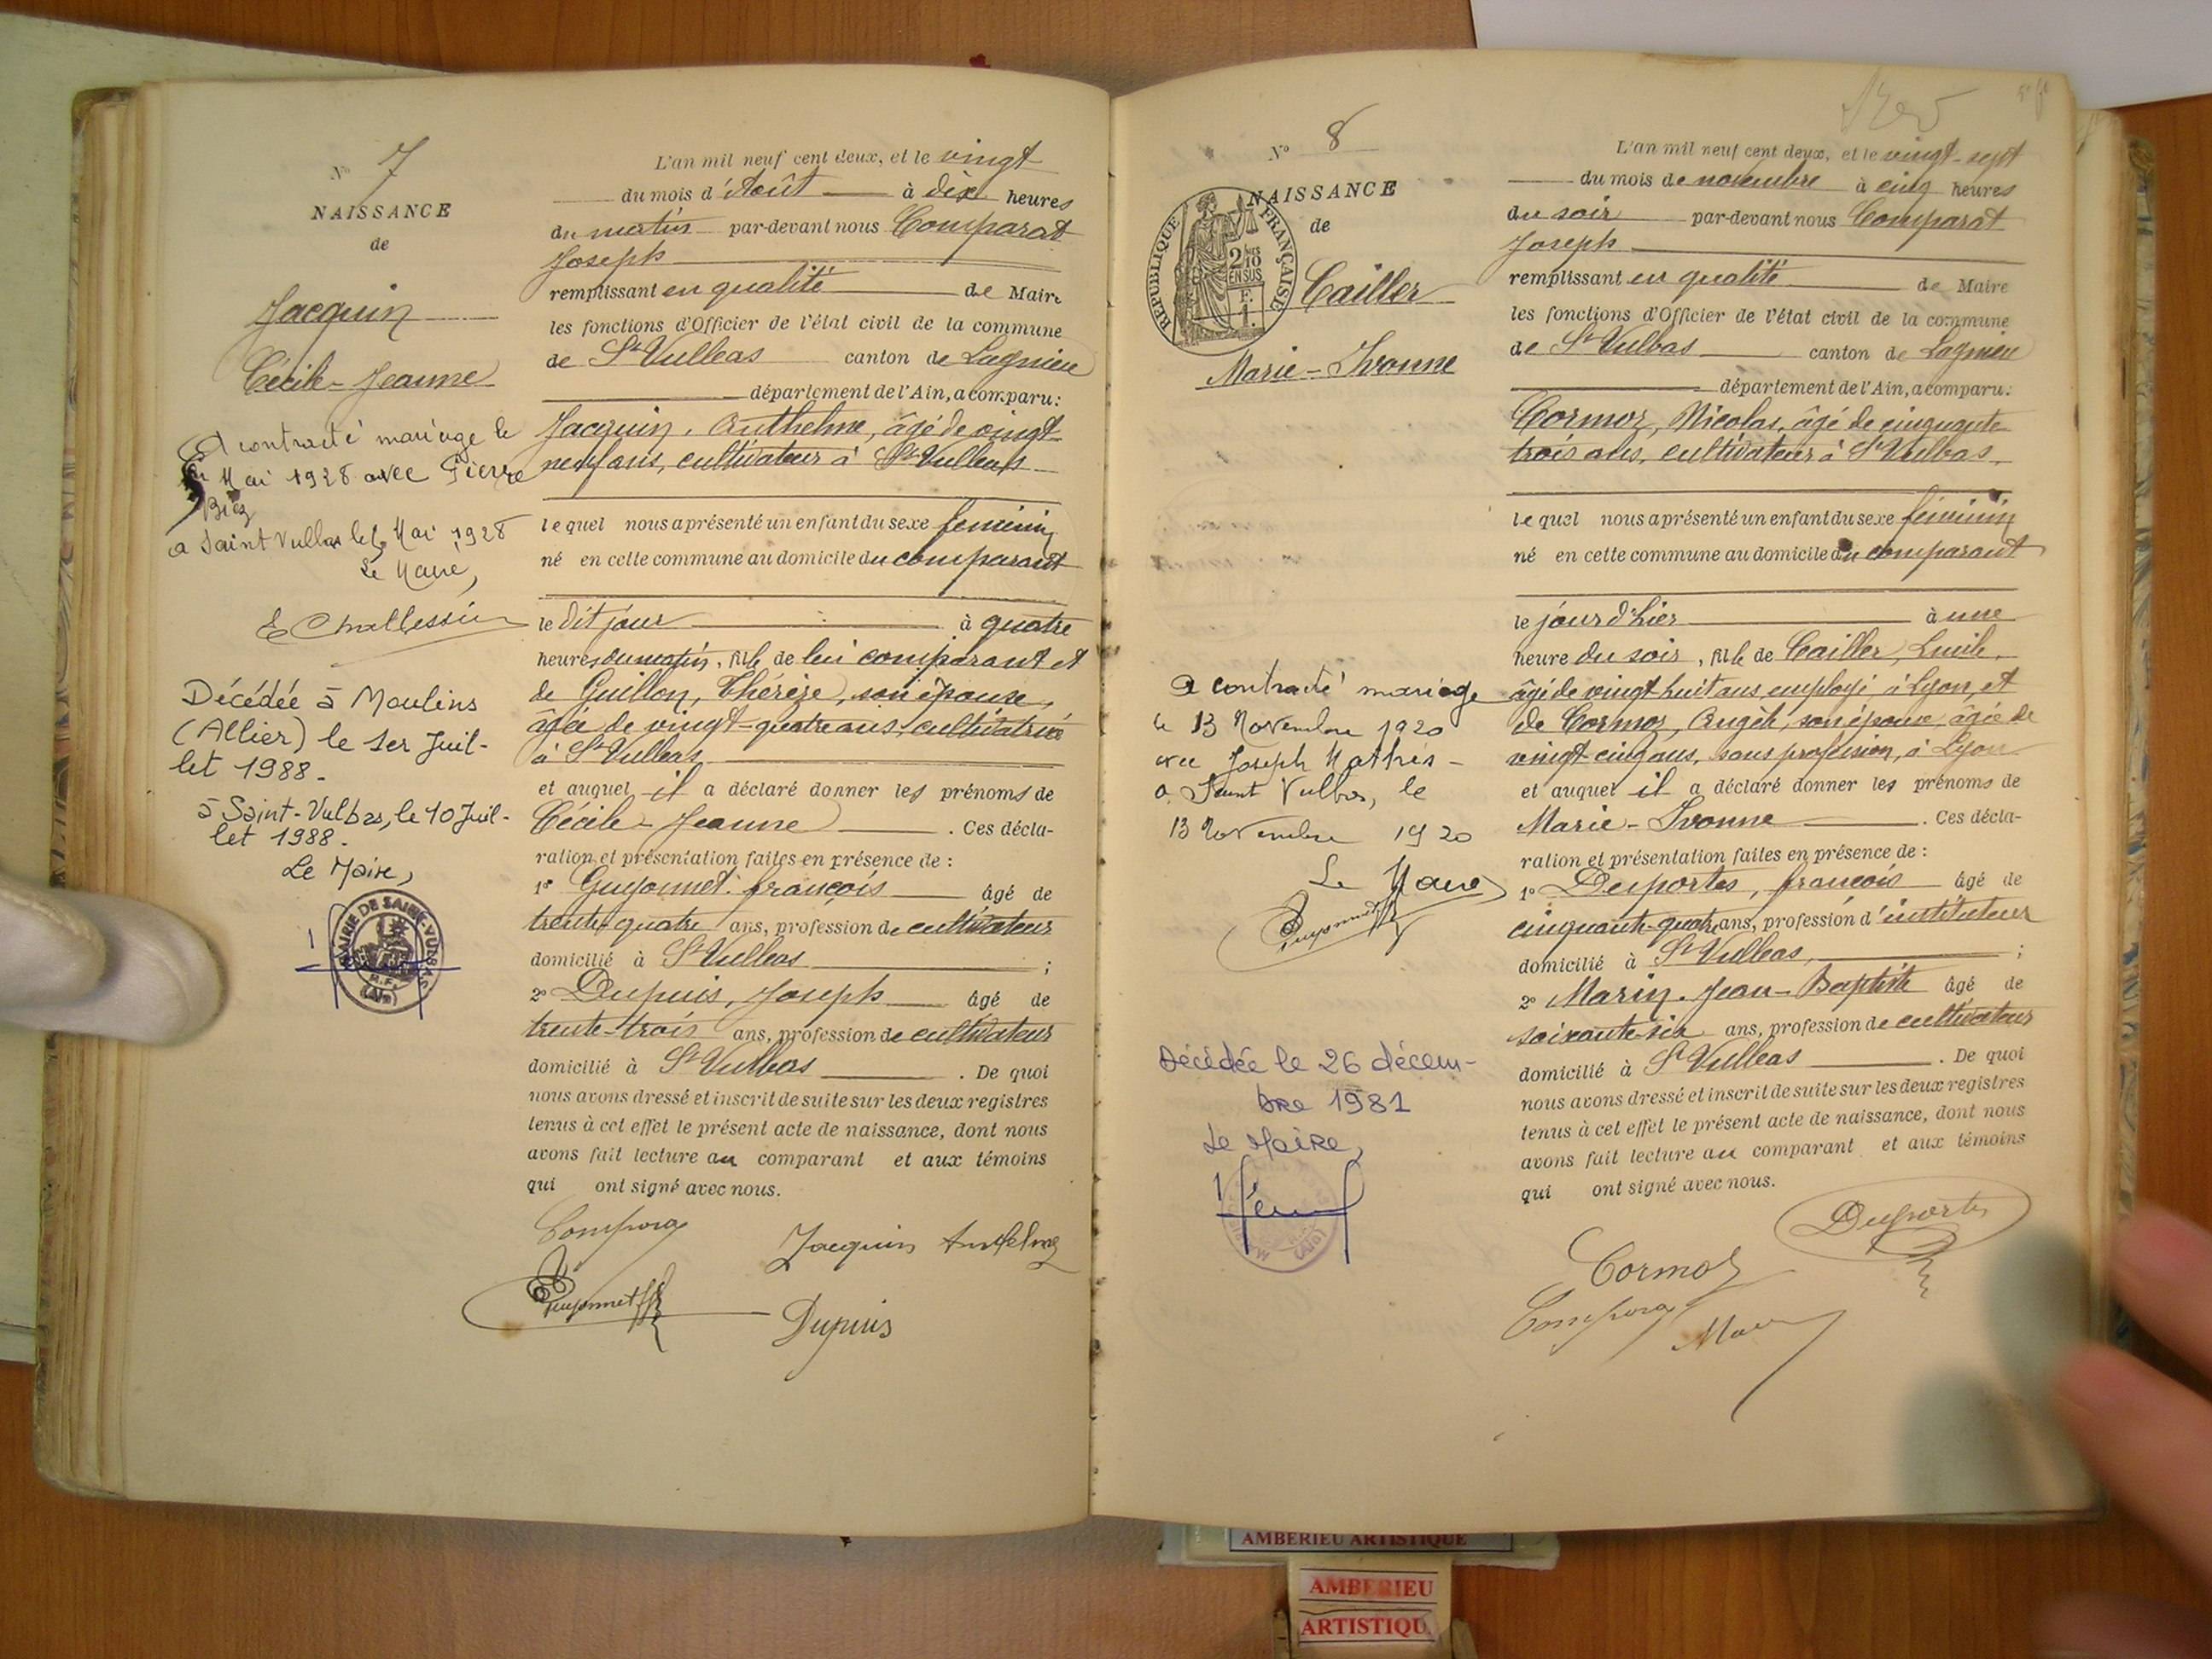 N° 7
NAISSANCE
de
Jacquin
Cécile-Jeanne
A contracté mariage le
Mai 1928 avec Pierre
a Saint Vulbas le Mai 1928
Le Maire,
Décédée à Moulins
(Allier) le 1er Juil-
let 1988.
à Saint-Vulbas, le 10 Juil-
let 1988.
Le Maire,
MAIRIE DE SAINT-VULBAS
R.F.
(Ain)
L'an mil neuf cent deux, et le vingt
du mois d'Août à dix heures
du matin par-devant nous Comparat
Joseph
remplissant en qualité de Maire
les fonctions d'Officier de l'état civil de la commune
de St Vulbas canton de Lagnieu
département de l'Ain, a comparu:
Jacquin, Anthelme, âgé de vingt-
neuf ans, cultivateur à St Vulbas
lequel nous a présenté un enfant du sexe féminin
né en cette commune au domicile du comparant
le dit jour à quatre
heures du matin, fille de lui comparant et
de Guillon, Thérèze, son épouse,
âgée de vingt-quatre ans, cultivatrice
à St Vulbas
et auquel il a déclaré donner les prénoms de
Cécile-Jeanne. Ces décla-
ration et présentation faites en présence de :
1° Guyonnet, françois âgé de
trente-quatre ans, profession de cultivateur
domicilié à St Vulbas ;
2° Dupuis, Joseph âgé de
trente-trois ans, profession de cultivateur
domicilié à St Vulbas. De quoi
nous avons dressé et inscrit de suite sur les deux registres
tenus à cet effet le présent acte de naissance, dont nous
avons fait lecture au comparant et aux témoins
qui ont signé avec nous.
Jacquin Anthelme
Guyonnet
Dupuis
N° 8
NAISSANCE
de
RÉPUBLIQUE FRANÇAISE
2/10
EN SUS
F.
1.
Cailler
Marie-Ivonne
a contracté mariage
le 13 Novembre 1920
avec Joseph Mathes
a Saint Vulbas, le
13 Novembre 1920
Le Maire
Guyonnet
Décédée le 26 décem-
bre 1981
Le Maire,
L'an mil neuf cent deux, et le vingt-sept
du mois de novembre à cinq heures
du soir par-devant nous Comparat
Joseph
remplissant en qualité de Maire
les fonctions d'Officier de l'état civil de la commune
de St Vulbas canton de Lagnieu
département de l'Ain, a comparu:
Cormoz, Nicolas, âgé de cinquante
trois ans, cultivateur à St Vulbas
lequel nous a présenté un enfant du sexe féminin
né en cette commune au domicile du comparant
le jour d'hier à une
heure du soir, fille de Cailler,
âgé de vingt-huit ans, employé à Lyon, et
de Cormoz, Angèle, son épouse, âgée de
vingt-cinq ans, sans profession, à Lyon
et auquel il a déclaré donner les prénoms de
Marie-Ivonne. Ces décla-
ration et présentation faites en présence de :
1° Desportes, françois âgé de
cinquante-quatre ans, profession d'instituteur
domicilié à St Vulbas, ;
2° Marin, Jean-Baptiste âgé de
soixante-six ans, profession de cultivateur
domicilié à St Vulbas. De quoi
nous avons dressé et inscrit de suite sur les deux registres
tenus à cet effet le présent acte de naissance, dont nous
avons fait lecture au comparant et aux témoins
qui ont signé avec nous.
Desportes
Cormoz
AMBERIEU ARTISTIQUE
AMBERIEU
ARTISTIQU